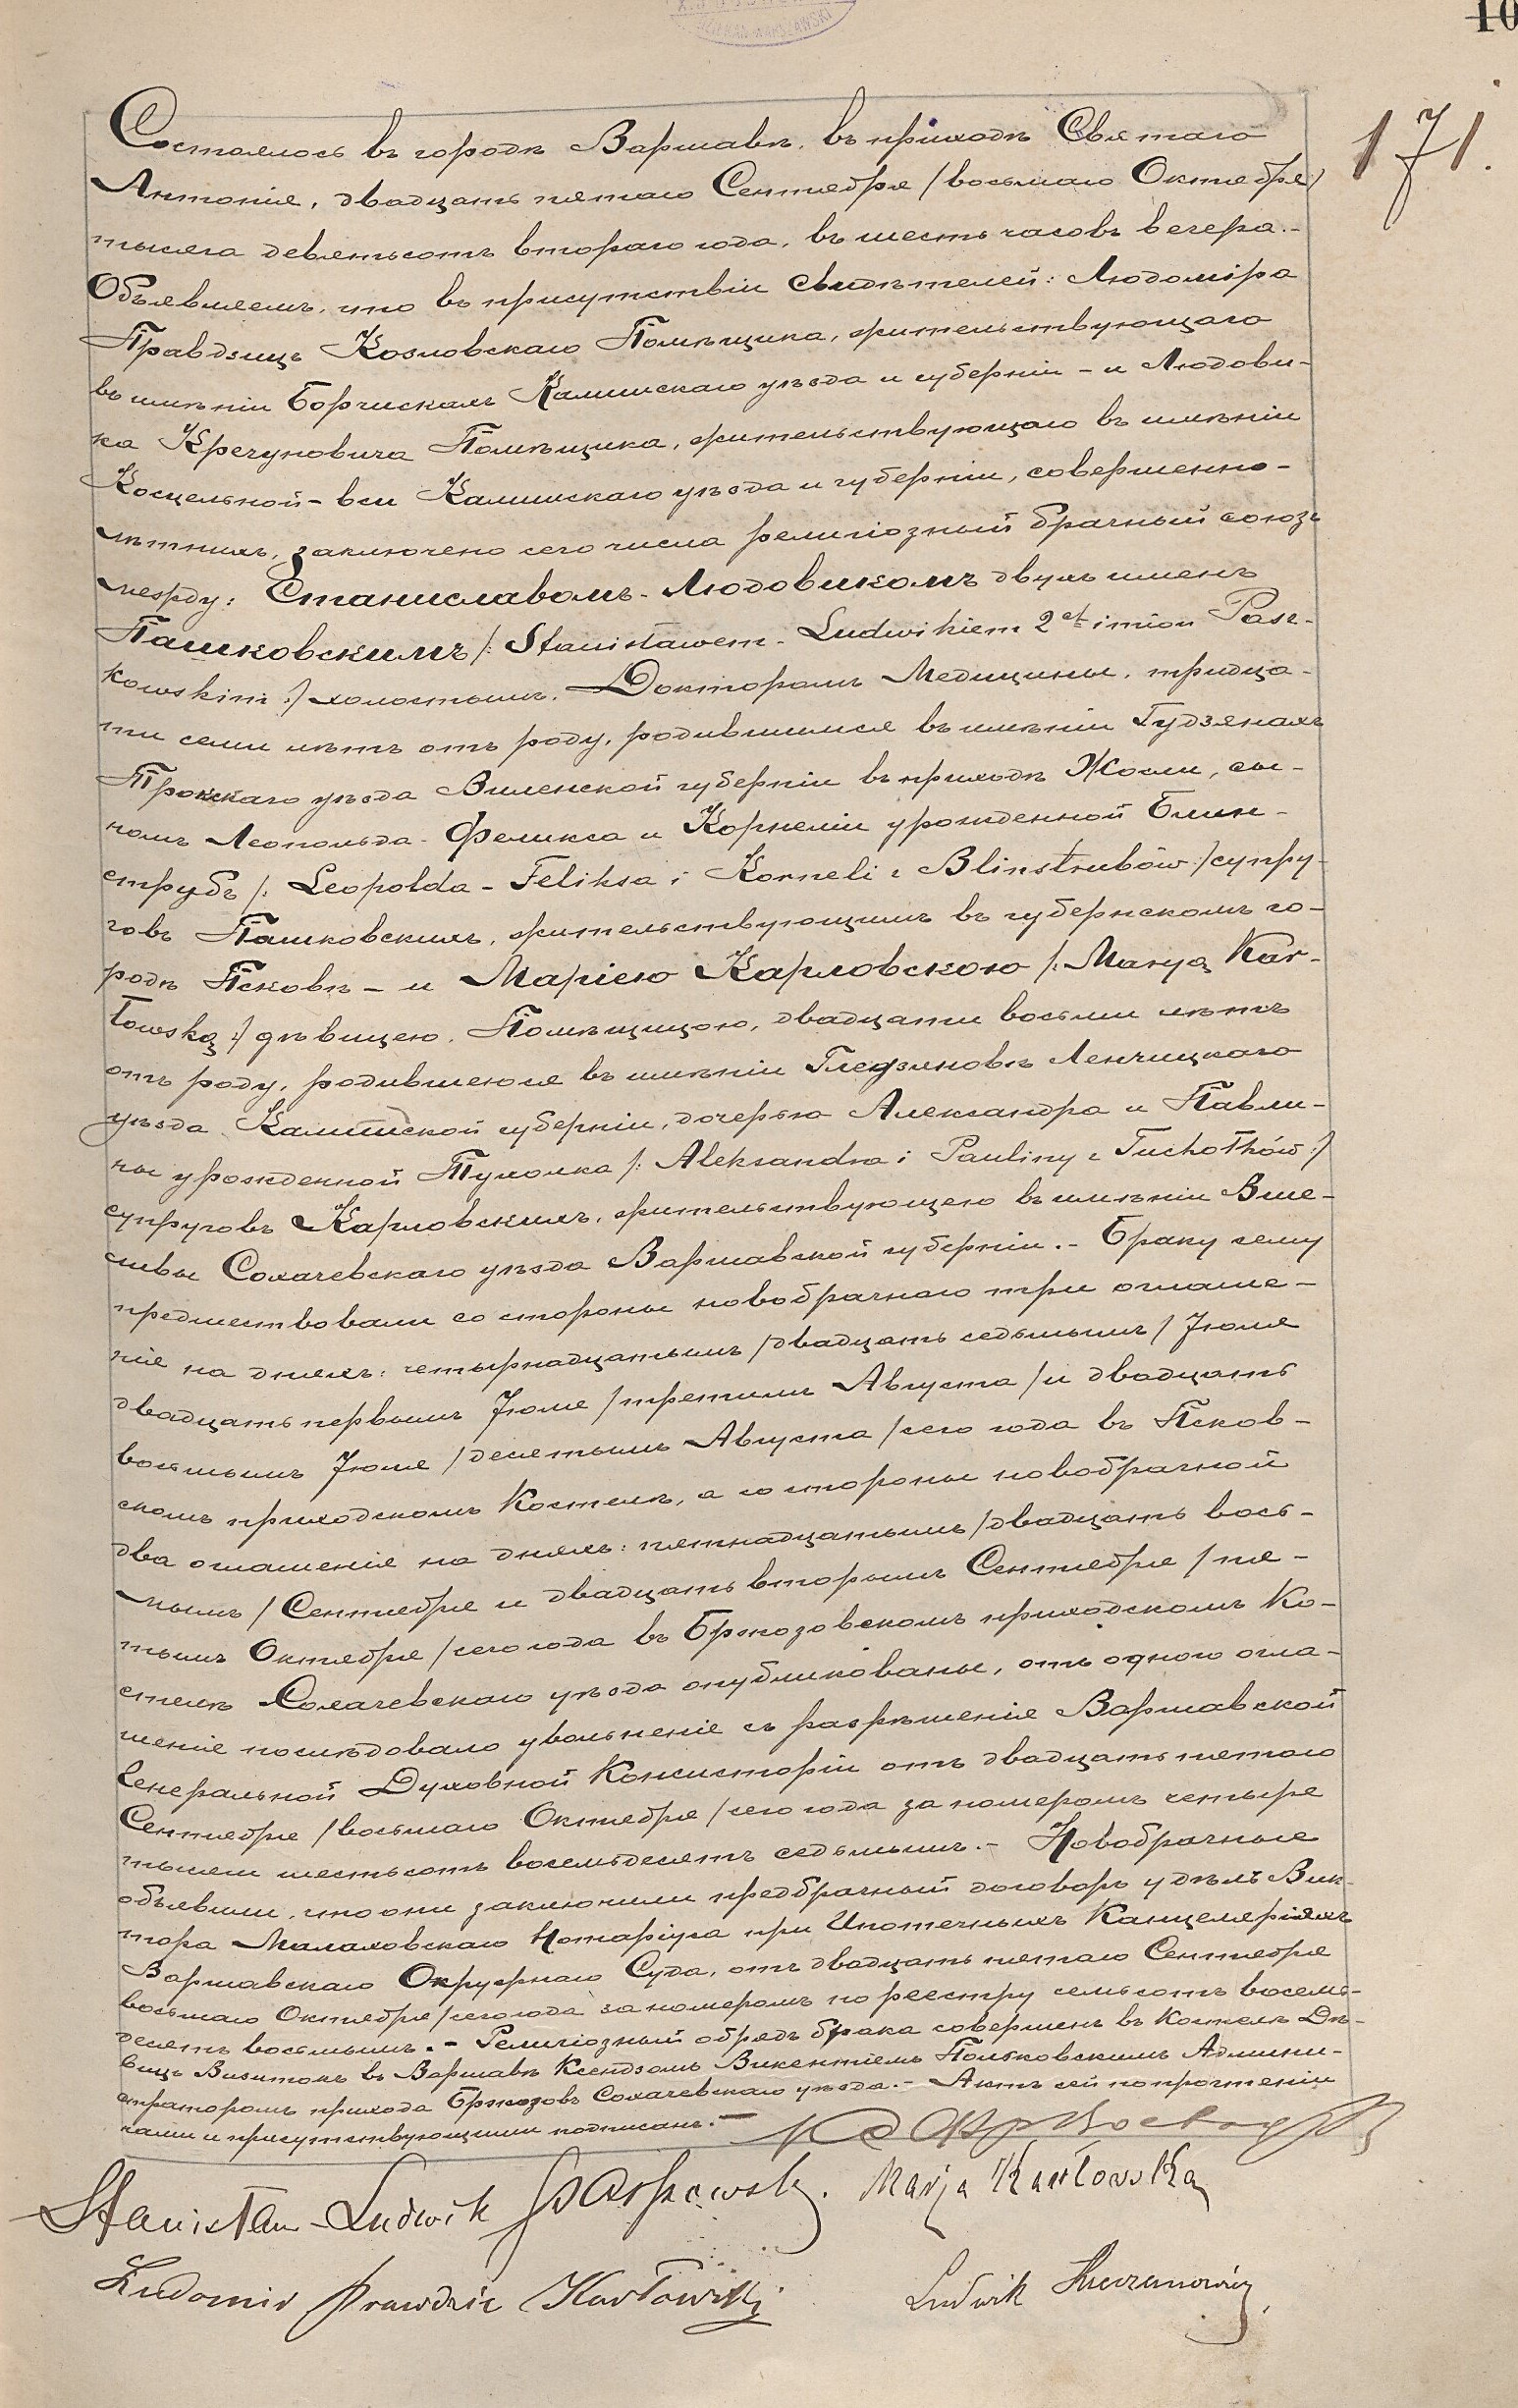 DZIEKAN WARSZAWSKI
10
171.
Состоялось въ городѣ Варшавѣ, въ приходѣ Святаго
Антонія, двадцать пятаго Сентября /восьмаго Октября/
тысяча девятьсотъ втораго года, въ шесть часовъ вечера.-
Объявляемъ, что въ присутствіи Свидѣтелей: Людоміра
Правдзицъ Козловскаго Помѣщика, жительствующаго
въ имѣніи Борчискахъ Калишскаго уѣзда и губерніи - и Людови-
ка Кречуновича Помѣщика, жительствующаго въ имѣніи
Косцельной-вси Калишскаго уѣзда и губерніи, совершенно-
лѣтнихъ, заключено сего числа религіозный брачный союзъ
между: Станиславомъ-Людовикомъ двухъ именъ
Пашковскимъ /: Stanisławem-Ludwikiem 2ch imion Pasz-
kowskim :/ холостымъ, Докторомъ Медицины, тридца-
ти семи лѣтъ отъ роду, родившимся въ имѣніи Гудзянахъ
Трокскаго уѣзда Виленской губерніи въ приходѣ Жосли, сы-
номъ Леопольда-Феликса и Корнеліи урожденной Блин-
струбъ /: Leopolda-Feliksa i Korneli z Blinstrubów :/ супру-
говъ Пашковскихъ, жительствующимъ въ губернскомъ го-
родѣ Псковѣ - и Маріею Карловскою /: Maryą Kar-
łowską :/ дѣвицею, Помѣщицою, двадцати восьми лѣтъ
отъ роду, родившеюся въ имѣніи Гледзяновѣ Ленчицкаго
уѣзда Калишской губерніи, дочерью Александра и Павли-
ны урожденной Тухолка /: Aleksandra i Pauliny z Tuchołków :/
супруговъ Карловскихъ, жительствующею въ имѣніи Вше-
ливы Сохачевскаго уѣзда Варшавской губерніи.- Браку сему
предшествовали со стороны новобрачнаго три оглаше-
нія на дняхъ: четырнадцатымъ /двадцать седьмымъ/ Іюля
двадцать первымъ Іюля /третьимъ Августа/ и двадцать
восьмымъ Іюля /десятымъ Августа/ сего года въ Псков-
скомъ приходскомъ Костелѣ, а со стороны новобрачной
два оглашенія на дняхъ: пятнадцатымъ /двадцать вось-
мымъ/ Сентября и двадцать вторымъ Сентября /пя-
тымъ Октября/ сего года въ Бржозовскомъ приходскомъ Ко-
стелѣ Сохачевскаго уѣзда опубликованы, отъ одного огла-
шенія послѣдовало увольненіе съ разрѣшенія Варшавской
Генеральной Духовной Консисторіи отъ двадцать пятаго
Сентября /восьмаго Октября/ сего года за номеромъ четыре
тысячи шестьсотъ восемьдесятъ седьмымъ.- Новобрачные
объявили, что они заключили предбрачный договоръ у дѣлъ Вик-
тора Малаховскаго Нотаріуса при Ипотечныхъ Канцеляріяхъ
Варшавскаго Окружнаго Суда, отъ двадцать пятаго Сентября
восьмаго Октября/ сего года за номеромъ по реестру семьсотъ восемь-
десятъ восьмымъ.- Религіозный обрядъ брака совершенъ въ Костелѣ Дѣ-
вицъ Визитокъ въ Варшавѣ Ксендзомъ Викентіемъ Польковскимъ Админи-
страторомъ прихода Бржозовъ Сохачевскаго уѣзда.- Актъ сей по прочтеніи
нами и присутствующими подписанъ.-
Stanisław-Ludwik Paszkowski. Marja Karłowska
Ludomir Prawdzic Karłowski
Ludwik Kreczunowicz,